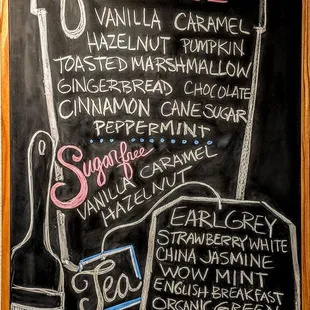 VANILLA CARAMEL
HAZELNUT PUMPKIN
TOASTED MARSHMALLOW
GINGERBREAD CHOCOLATE
CINNAMON CANE SUGAR
PEPPERMINT
Sugar free
VANILLA CARAMEL
HAZELNUT
Tea
EARL GREY
STRAWBERRY WHITE
CHINA JASMINE
WOW MINT
ENGLISH BREAKFAST
ORGANIC GREEN